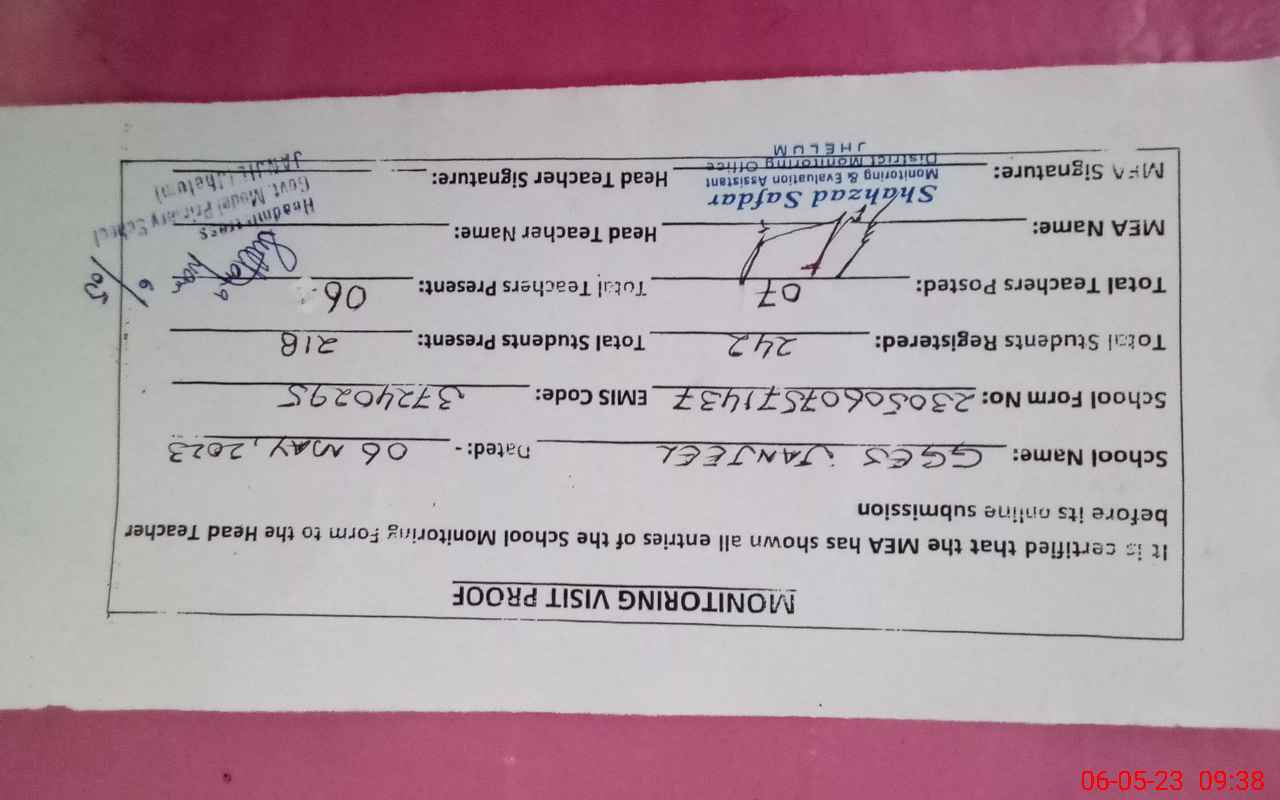 MONITORING VISIT PROOF
It is certified that the MEA has shown all entries of the School Monitoring Form to the Head Teacher
before its online submission
School Name: GGES JANJEEL Dated: - 06 MAY, 2023
School Form No: 23050607571437 EMIS Code: 37240295
Total Students Registered: 242 Total Students Present: 218
Total Teachers Posted: 07 Total Teachers Present: 06
MEA Name: Head Teacher Name:
Shahzad Safdar
Monitoring & Evaluation Assistant
District Monitoring Office
JHELUM
MEA Signature: Head Teacher Signature:
6/05
Headmistress
Govt. Model Primary School
(Jhelum)
06-05-23 09:38